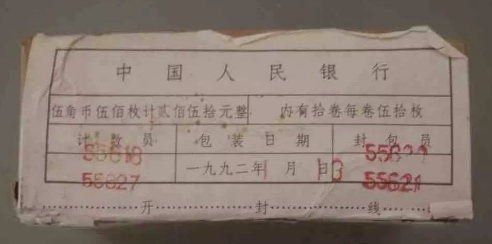 中国人民银行
伍角币伍佰枚计贰佰伍拾元整 内有拾卷每卷伍拾枚
计数员 包装日期 封包员
55627 一九九二年1月13日 55621
开封线